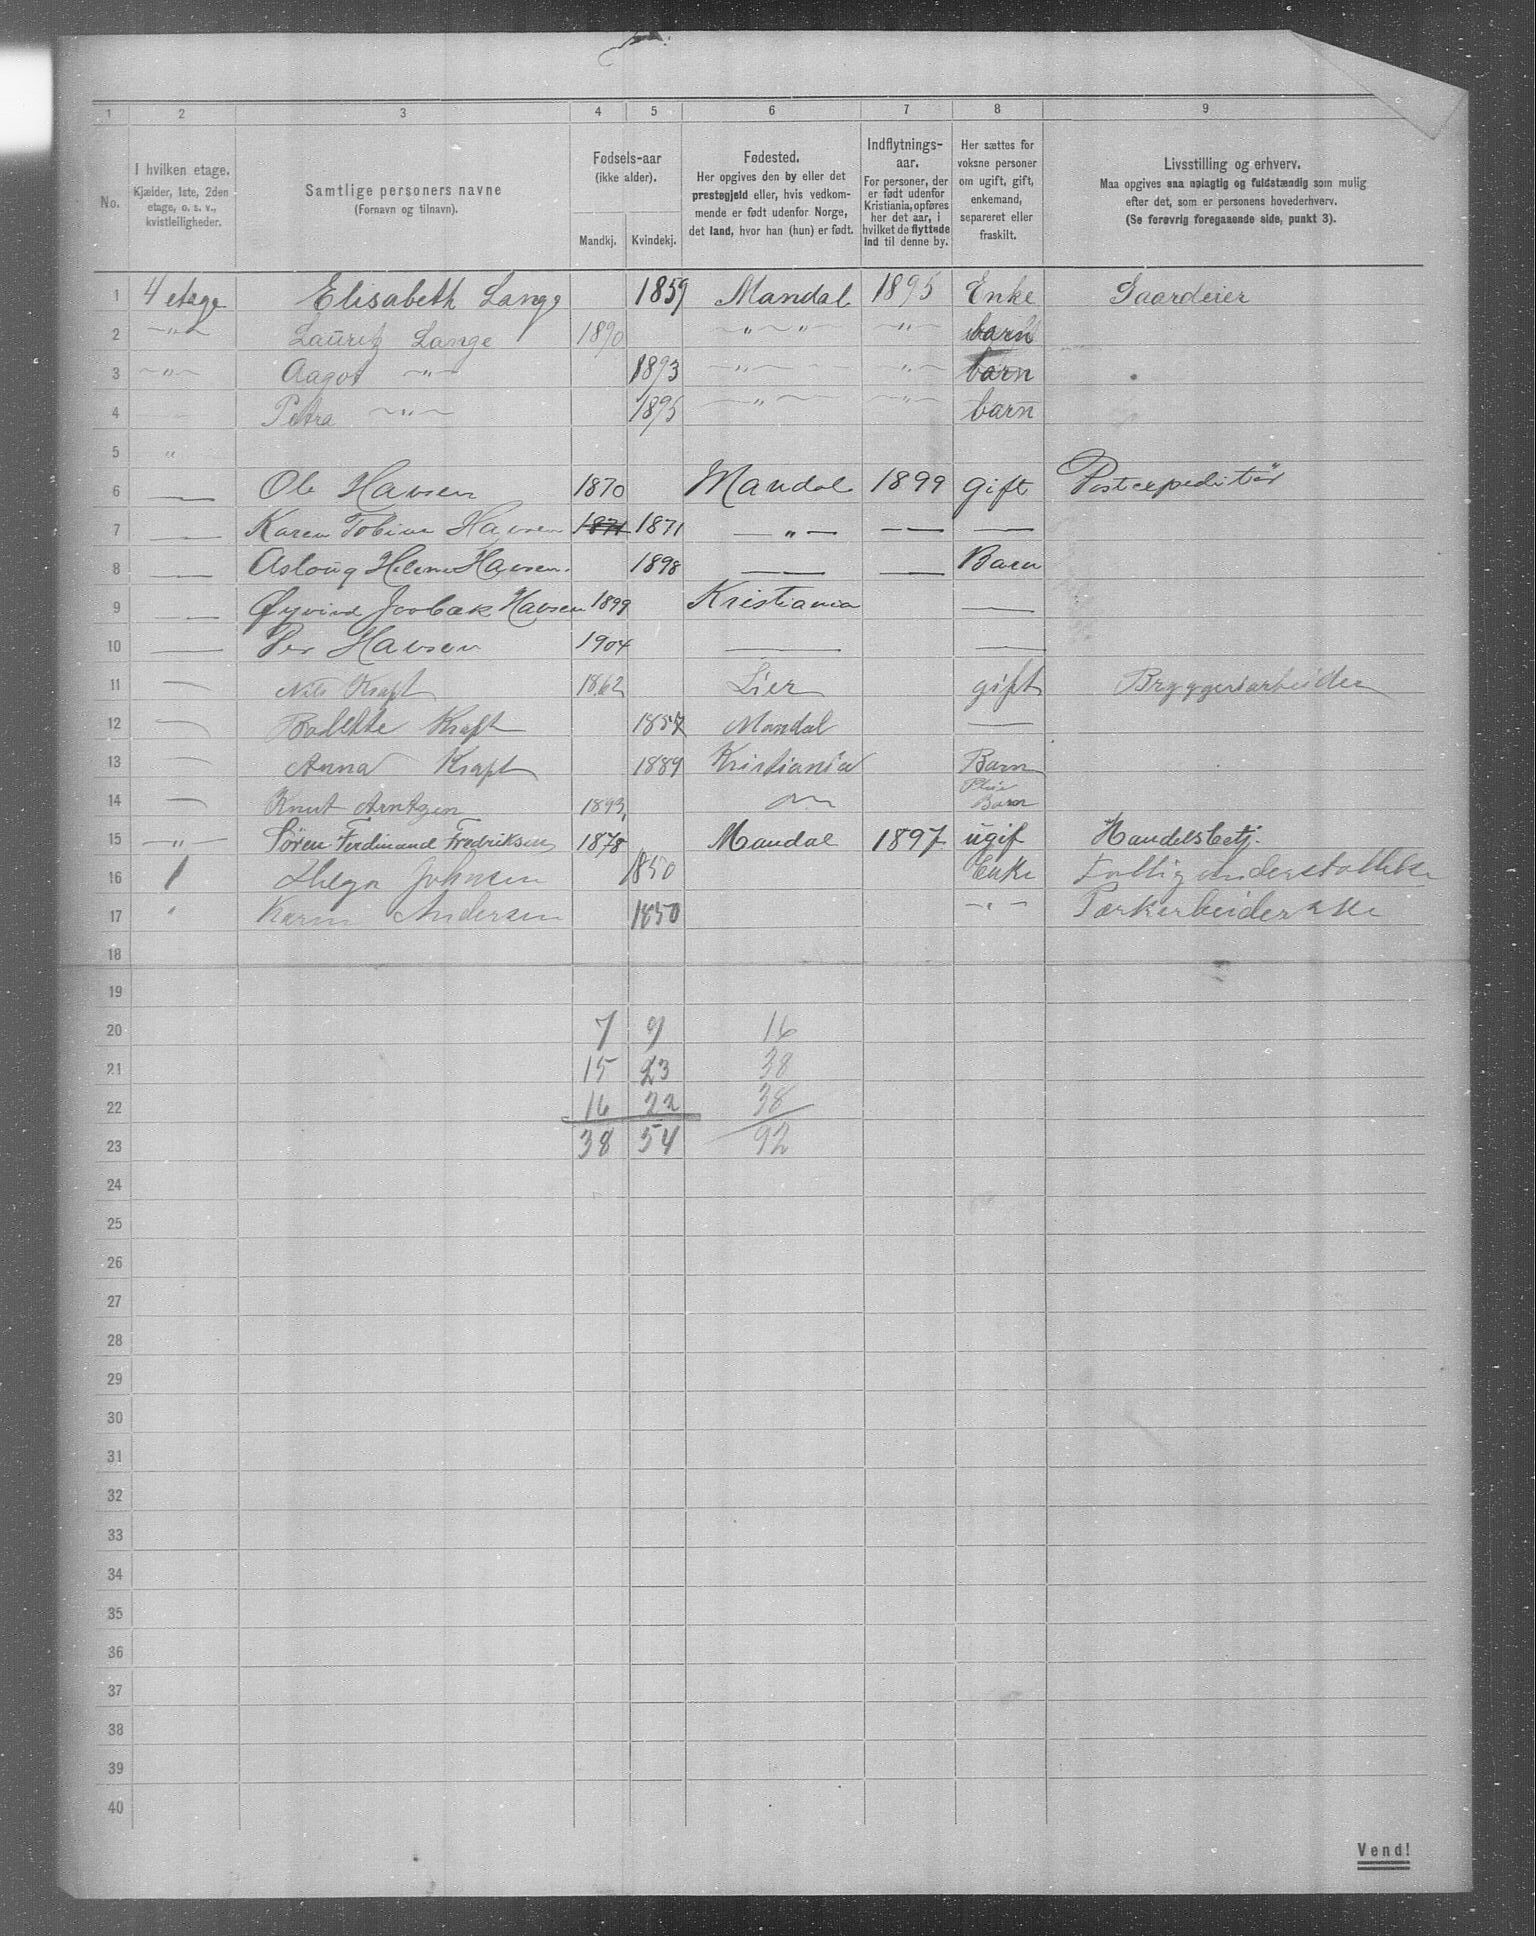 1 2 3 4 5 6 7 8 9
No.
I hvilken etage.
Kjælder, 1ste, 2den
etage, o. s. v.,
kvistleiligheder.
Samtlige personers navne
(Fornavn og tilnavn).
Fødsels-aar
(ikke alder).
Mandkj. Kvindekj.
Fødested.
Her opgives den by eller det
prestegjeld eller, hvis vedkom-
mende er født udenfor Norge,
det land, hvor han (hun) er født.
Indflytnings-
aar.
For personer, der
er født udenfor
Kristiania, opføres
her det aar, i
hvilket de flyttede
ind til denne by.
Her sættes for
voksne personer
om ugift, gift,
enkemand,
separeret eller
fraskilt.
Livsstilling og erhverv.
Maa opgives saa nøiagtig og fuldstændig som mulig
efter det, som er personens hovederhverv.
(Se forøvrig foregaaende side, punkt 3).
1 4 etage Elisabeth Lange 1859 Mandal 1895 Enke Gaardeier
2 " Lauritz Lange 1890 " " " barn
3 " Aagot " 1893 " " barn
4 Petra " 1895 " " barn
5 "
6 — Ole Hansen 1870 Mandal 1899 gift Postexpeditør
7 — Karen Tobine Hansen 1871 1871 — " — — —
8 — Aslaug Helene Hansen. 1898 — — Barn
9 — Øyvind Hansen 1899 Kristiania —
10 — Per Hansen 1904 — —
11 — Nils Kraft 1862 Lier gift Bryggeriarbeider
12 — Kraft 1857 Mandal —
13 — Anna Kraft 1889 Kristiania Barn
14 — Knut Arntzen 1893 Pleie
Barn
15 " Søren Ferdinand Fredriksen 1878 Mandal 1897 ugif Handelsbetj.
16 Helga Johnsen 1850 Enke Fattigunderstøttelse
17 " Karen Andersen 1850 - " -
18
19
20 7 9 16
21 15 23 38
22 16 22 38
23 38 54 92
24
25
26
27
28
29
30
31
32
33
34
35
36
37
38
39
40
Vend!